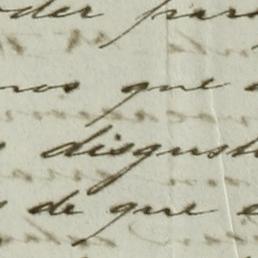 oder para
nos que
disgusto
de que e